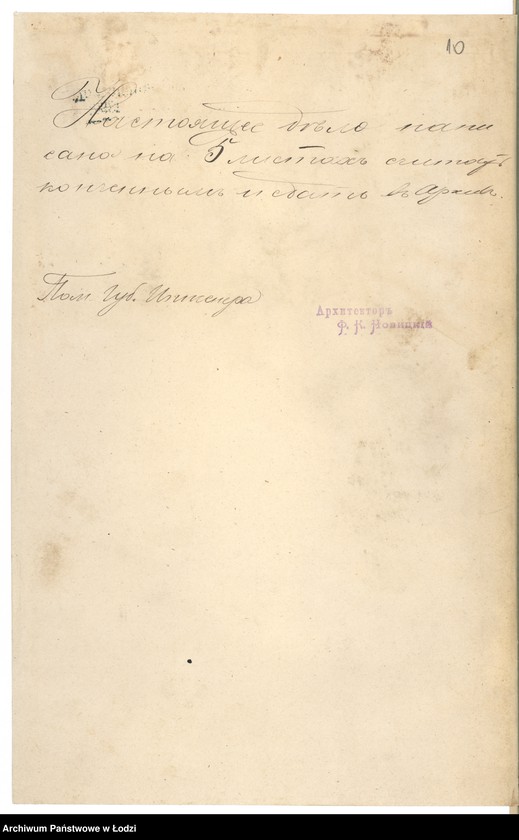 10
Настоящее дѣло напи
сано на 5 листахъ считать
конченнымъ и сдать въ Архивъ.
Пом. Губ. Инженера
Архитекторъ
Ф. К. Новицкій
Archiwum Państwowe w Łodzi